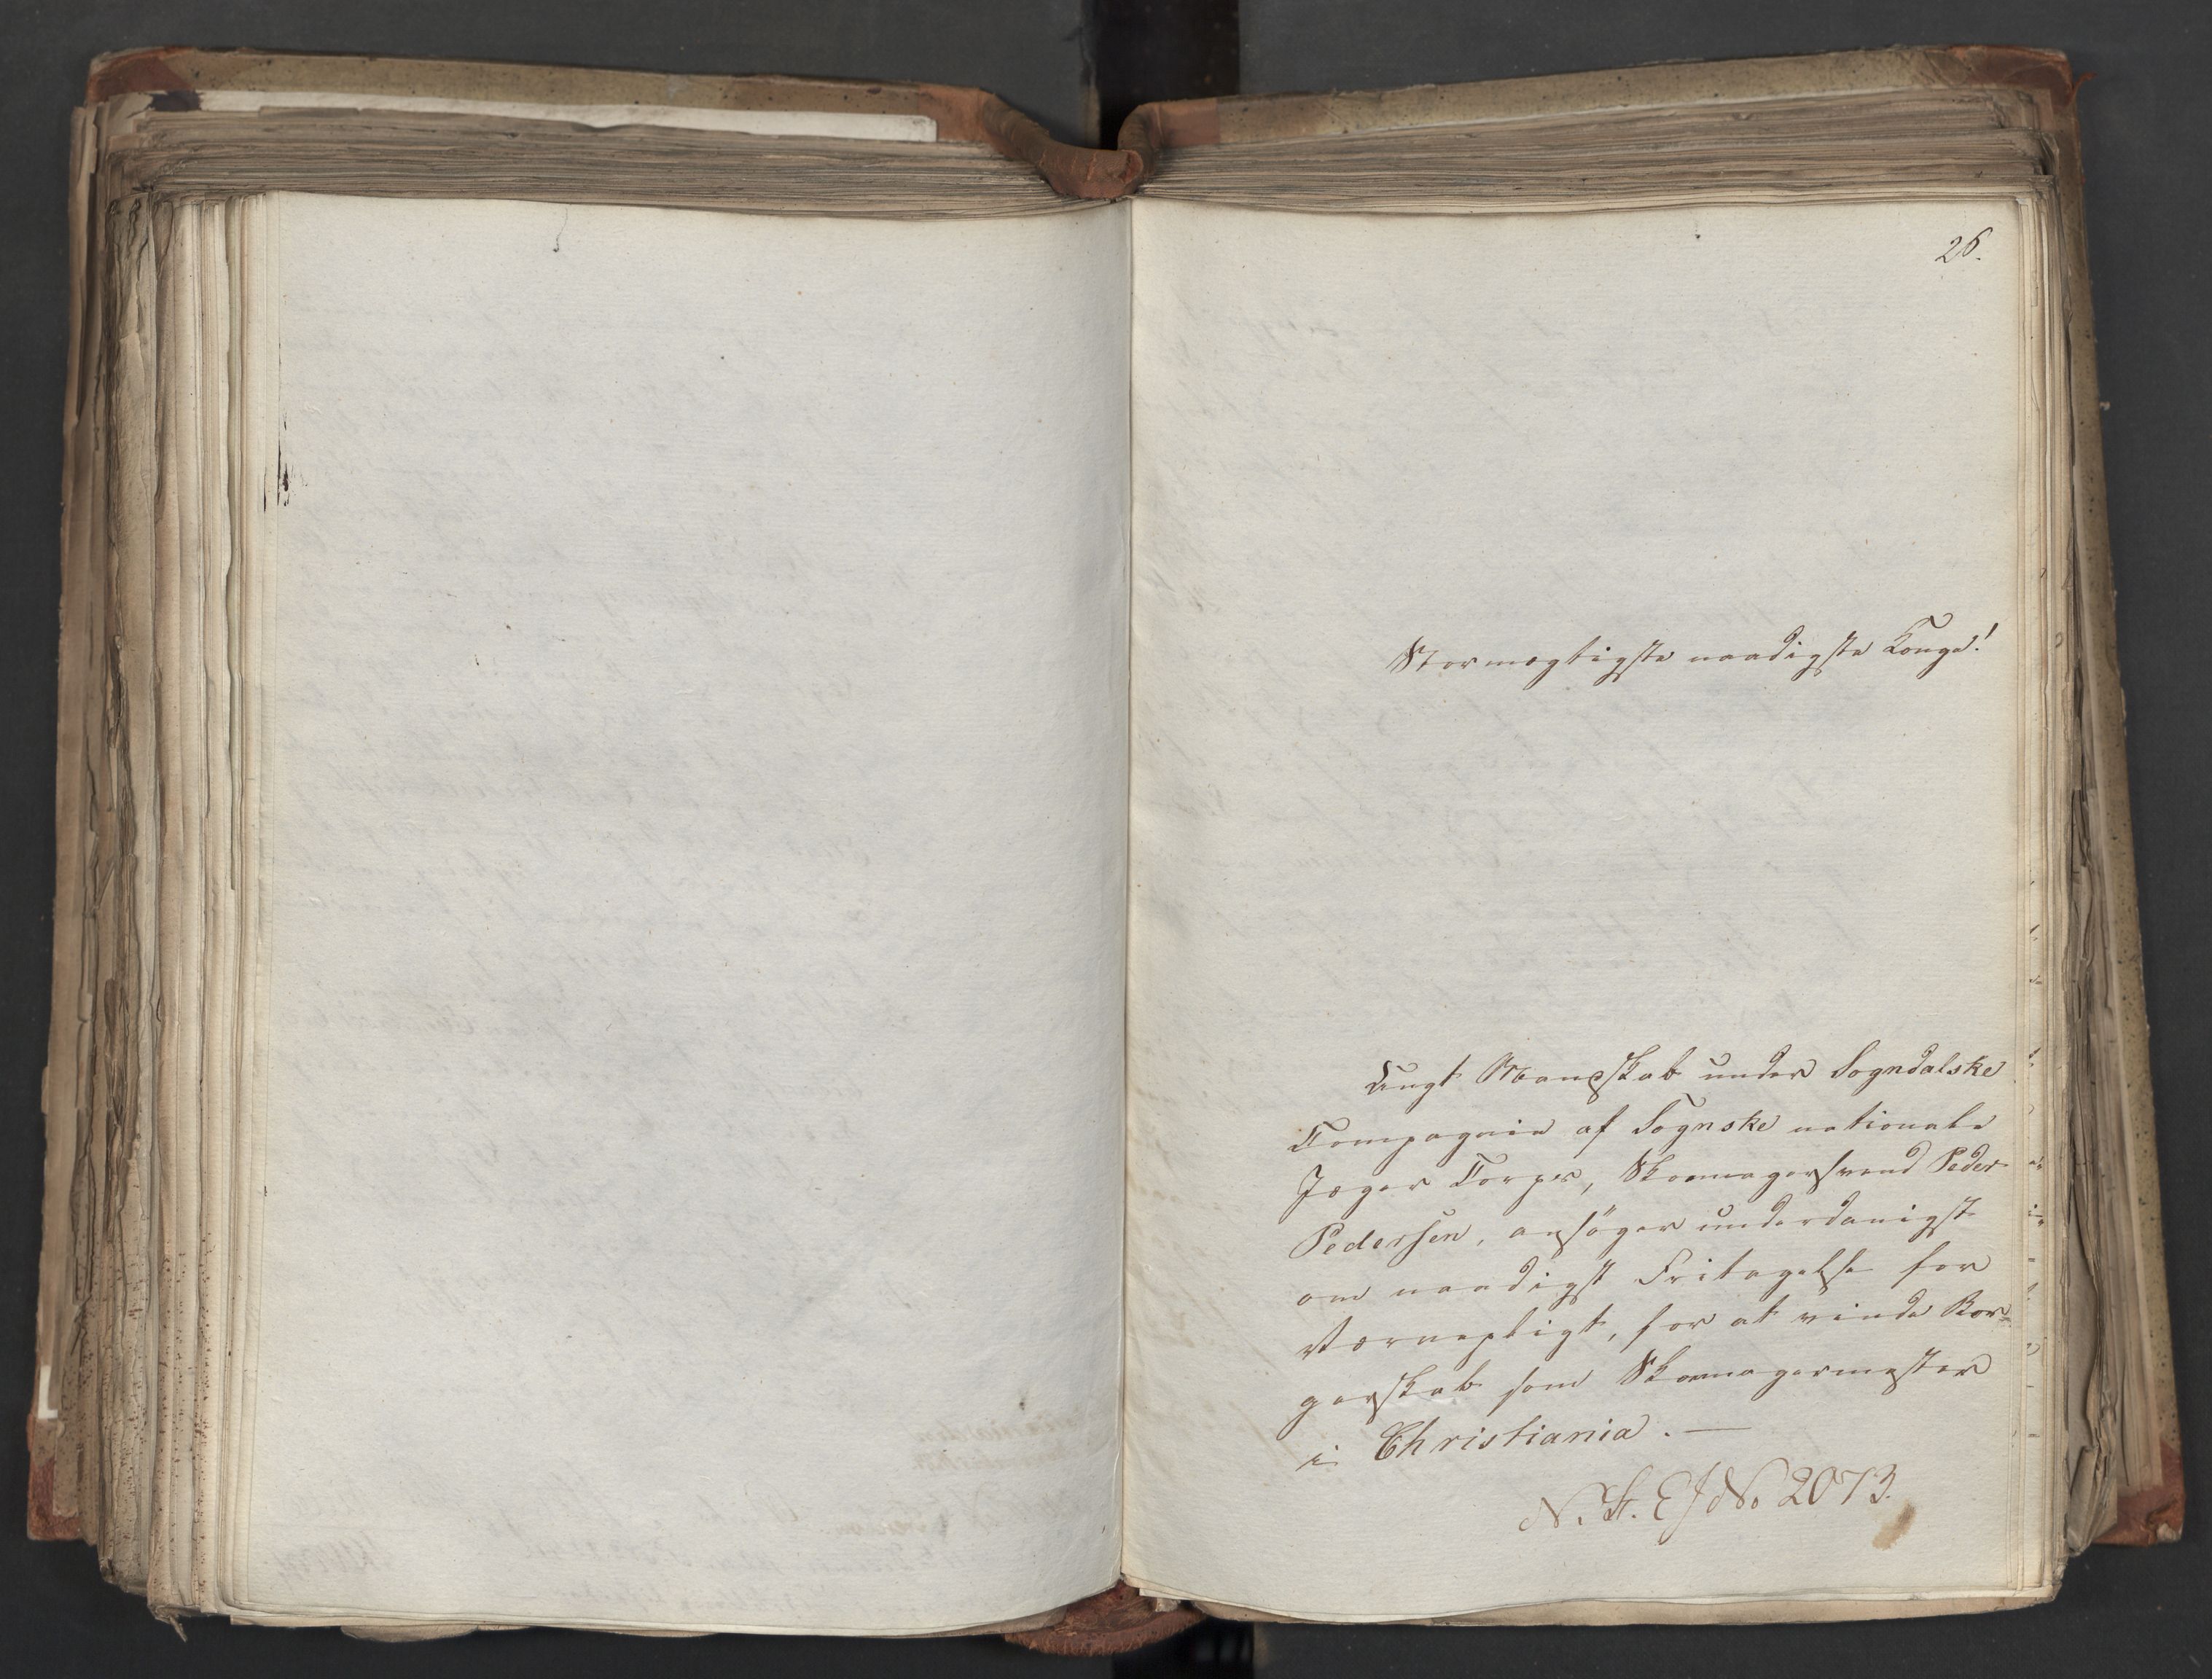 26.
Stormægtigste naadigste Konge!
Ungt Mandskab under Sogndalske
Compagnie af Sognske nationale
Jæger Corps, Skomagersvend Peder
Pedersen, ansöger underdanigst
om naadigst Fritagelse for
Værnepligt, for at vinde Bor-
gerskab som Skomagermester
i Christiania. —
N. St. E J No 2073.